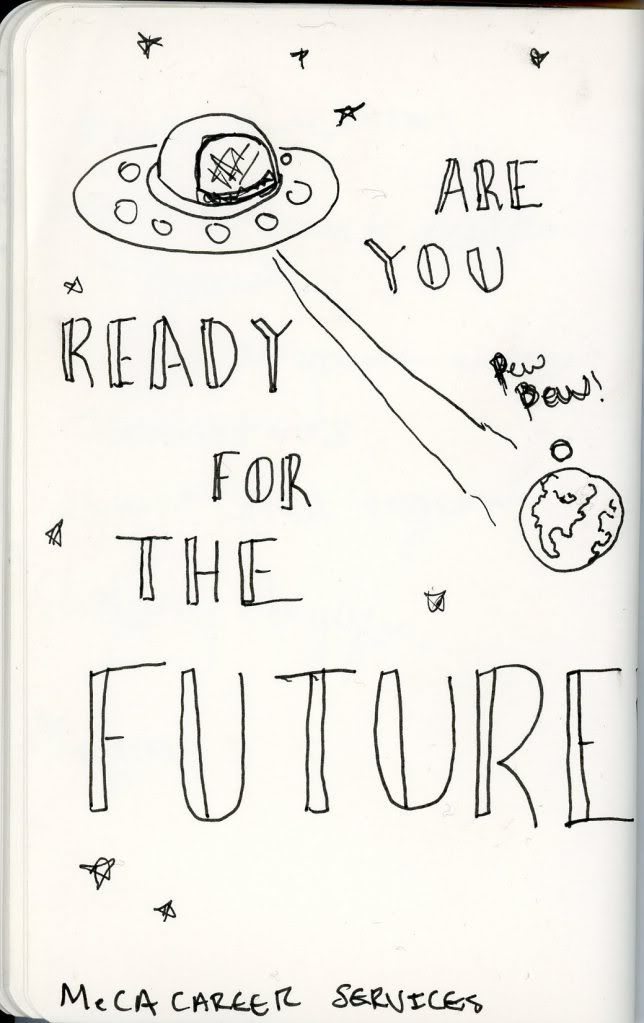 ARE
YOU
READY
Pew
Pew!
FOR
THE
FUTURE
MeCA CAREER SERVICES